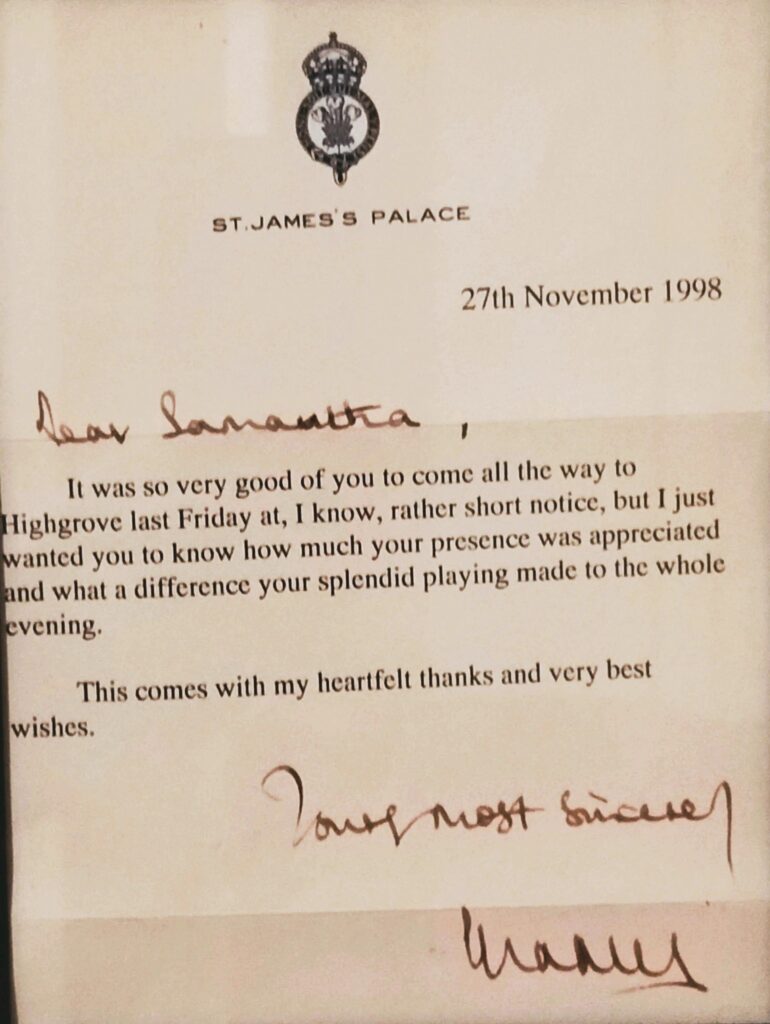 ST. JAMES'S PALACE
27th November 1998
Dear Samantha,
It was so very good of you to come all the way to
Highgrove last Friday at, I know, rather short notice, but I just
wanted you to know how much your presence was appreciated
and what a difference your splendid playing made to the whole
evening.
This comes with my heartfelt thanks and very best
wishes.
Yours most sincerely
Charles